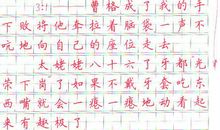 3:1 曹格成了我的手
下败将他耷拉着脑袋一声不
吭地向自己的座位走去
太姥姥八十六了牙都光
荣下岗了如果不戴牙套吃东
西嘴就会一瘪一瘪地动看起
来有趣极了